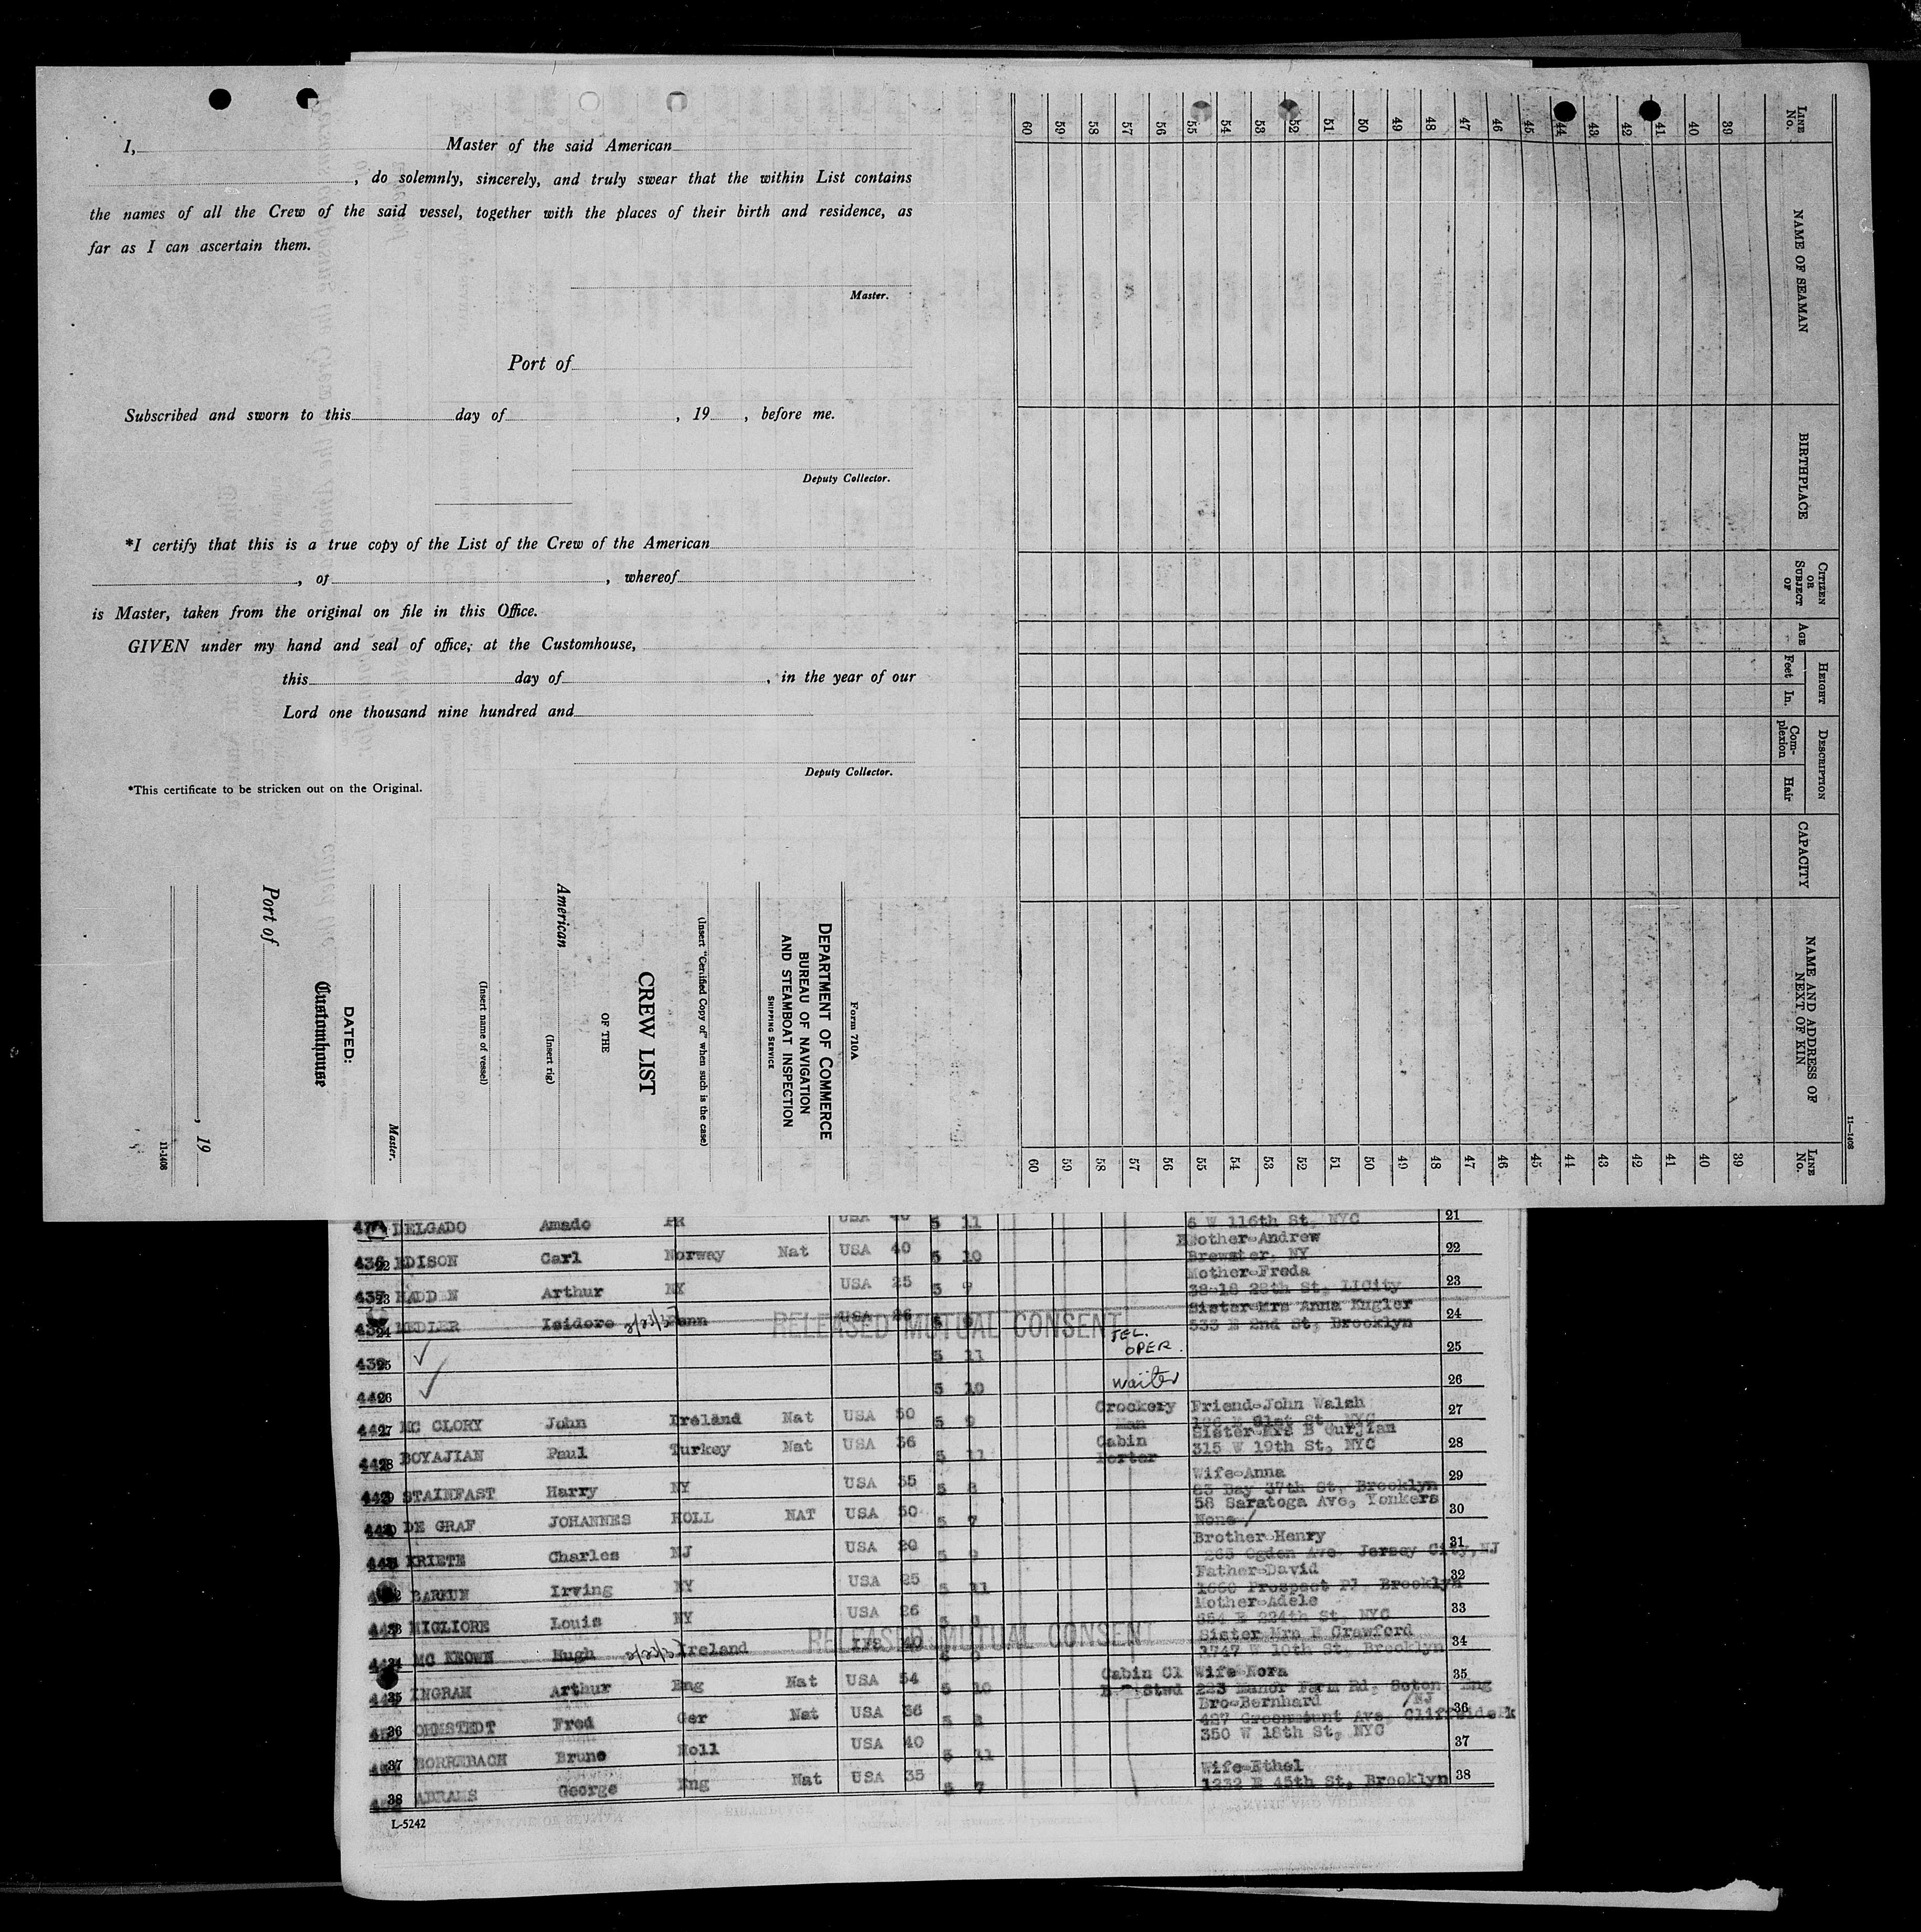 I, Master of the said American
, do solemnly, sincerely, and truly swear that the within List contains
the names of all the Crew of the said vessel, together with the places of their birth and residence, as
far as I can ascertain them.
Master.
Port of
Subscribed and sworn to this day of , 19 , before me.
Deputy Collector.
*I certify that this is a true copy of the List of the Crew of the American
, of , whereof
is Master, taken from the original on file in this Office.
GIVEN under my hand and seal of office, at the Customhouse,
this day of , in the year of our
Lord one thousand nine hundred and
Deputy Collector.
*This certificate to be stricken out on the Original.
Form 710A
DEPARTMENT OF COMMERCE
BUREAU OF NAVIGATION
AND STEAMBOAT INSPECTION
SHIPPING SERVICE
(Insert "Certified Copy of" when such is the case)
CREW LIST
OF THE
American
(Insert rig)
(Insert name of vessel)
Master.
DATED:
Customhouse
Port of
, 19
11-1408
11—1408
LINE No. NAME OF SEAMAN BIRTHPLACE CITIZEN OR SUBJECT OF AGE HEIGHT Feet In. DESCRIPTION Complexion Hair CAPACITY NAME AND ADDRESS OF NEXT OF KIN LINE No.
39 39
40 40
41 41
42 42
43 43
44 44
45 45
46 46
47 47
48 48
49 49
50 50
51 51
52 52
53 53
54 54
55 55
56 56
57 57
58 58
59 59
60 60
DELGADO Amado PR USA 5 11 6 W 116th St, NYC 21
EDISON Carl Norway Nat USA 40 5 10 Mother-Andrew Brewster, NY 22
HADDEN Arthur NY USA 25 5 9 Mother-Freda 38-18 28th St, LICity 23
MEDLER Isidore Penn USA 26 5 Sister-Mrs Anna Kugler 533 E 2nd St, Brooklyn 24
RELEASED MUTUAL CONSENT
25 ✓ 5 11 TEL. OPER. 25
26 ✓ 5 10 waiter 26
27 MC GLORY John Ireland Nat USA 50 5 9 Crockery Man Friend-John Walsh St, NYC 27
28 BOYAJIAN Paul Turkey Nat USA 36 5 11 Cabin Porter Sister-Mrs B Gurjian 315 W 19th St, NYC 28
STAINFAST Harry NY USA 35 5 8 Wife-Anna 83 Bay 37th St, Brooklyn 29
DE GRAF JOHANNES HOLL NAT USA 50 5 7 58 Saratoga Ave, Yonkers None 30
KRIETE Charles NJ USA 20 5 9 Brother-Henry 265 Ogden Ave Jersey City, NJ 31
BARKUN Irving NY USA 25 5 11 Father-David 1660 Prospect Pl, Brooklyn 32
33 MIGLIORE Louis NY USA 26 5 Mother-Adele 854 E 224th St, NYC 33
MC KEOWN Hugh Ireland IFS 40 Sister Mrs E Crawford 1747 W 10th St, Brooklyn 34
RELEASED MUTUAL CONSENT
35 INGRAM Arthur Eng Nat USA 54 5 10 Cabin Cl Stwd Wife Nora 223 Manor Farm Rd, Soton Eng 35
36 ORMSTEDT Fred Ger Nat USA 36 5 8 Bro-Bernhard 427 Greenmount Ave, CliffsidePk /NJ 36
37 BORREBACH Bruno Holl USA 40 5 11 350 W 18th St, NYC 37
38 ABRAMS George Eng Nat USA 35 5 7 Wife-Ethel 1232 E 45th St, Brooklyn 38
L-5242